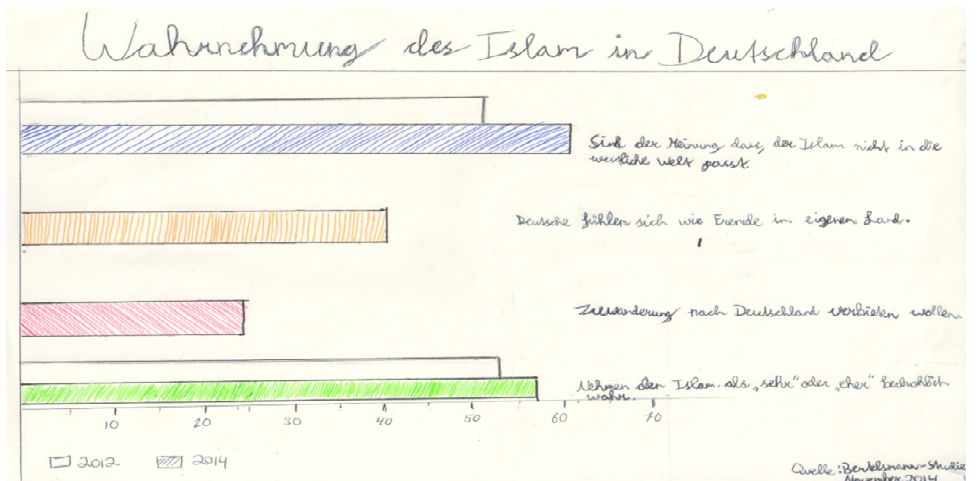 Wahrnehmung des Islam in Deutschland
Sind der Meinung dass, der Islam nicht in die
westliche Welt passt.
Deutsche fühlen sich wie Fremde im eigenen Land.
Zuwanderung nach Deutschland verbieten wollen.
Nehmen den Islam als „sehr“ oder „eher“ bedrohlich
wahr.
10 20 30 40 50 60 70
2012 2014
Quelle: Bertelsmann-Studie
November 2014